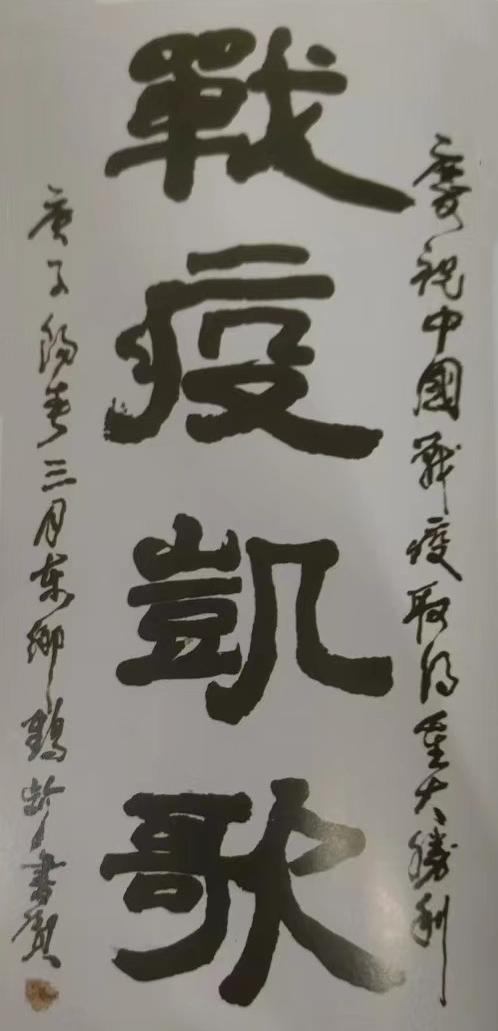 慶祝中國戰疫取得重大勝利
戰疫凱歌
庚子陽春三月東鄉鶴齡書賀